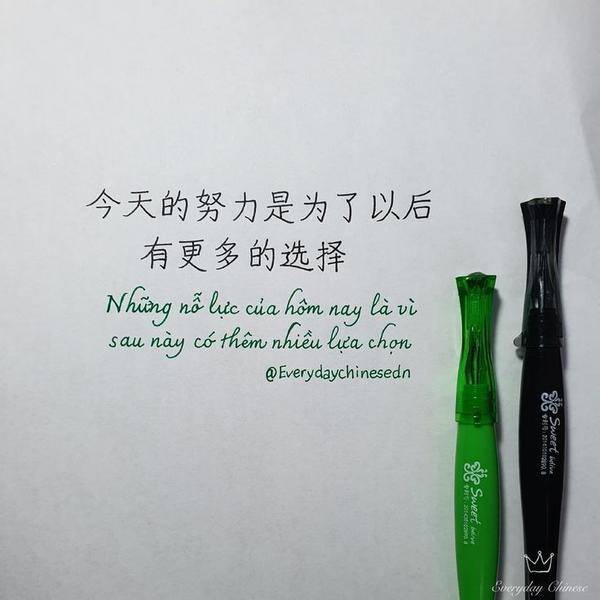 今天的努力是为了以后
有更多的选择
Những nỗ lực của hôm nay là vì
sau này có thêm nhiều lựa chọn
@Everydaychinesedn
Sweet
Sweet
Everyday Chinese